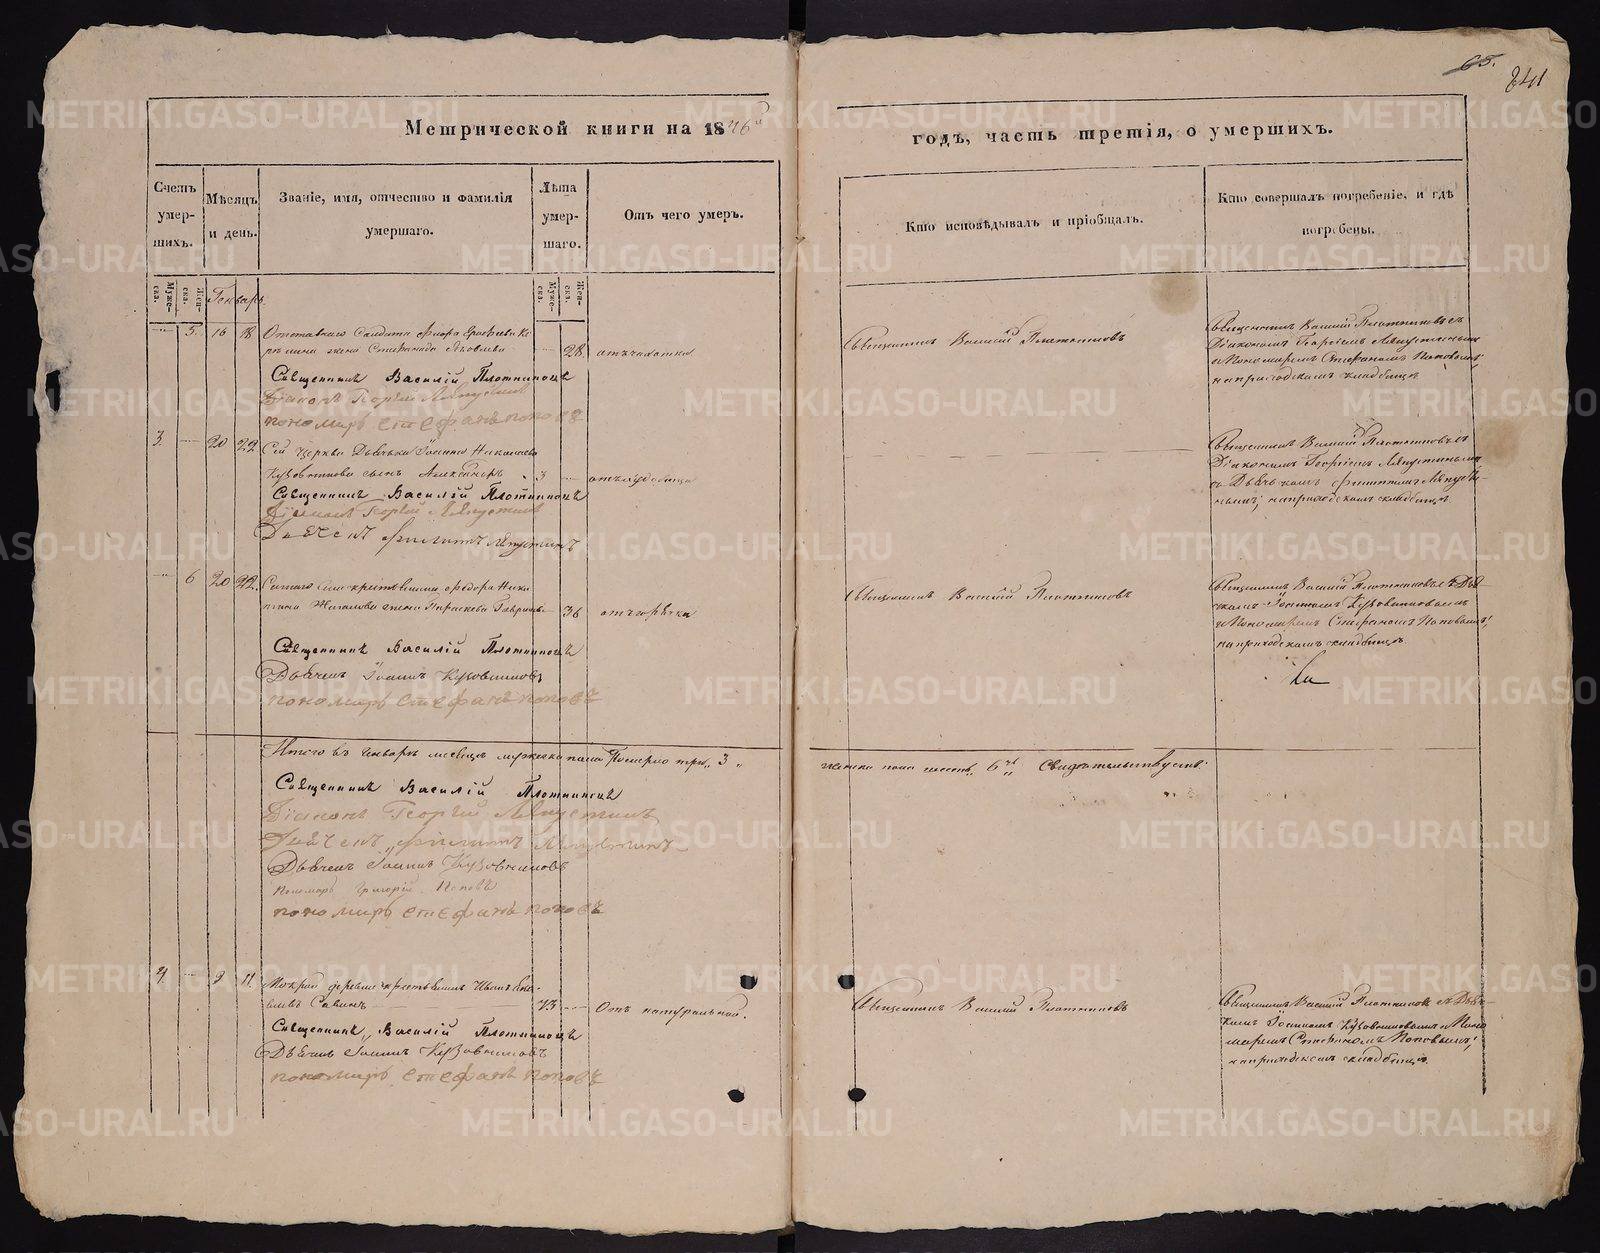 65.
841
Метрической книги на 1846й
годъ, часть третія, о умершихъ.
Счетъ умер-шихъ.
Мѣсяцъ и день.
Званіе, имя, отчество и фамилія умершаго.
Лѣта умер-шаго.
Отъ чего умеръ.
Кто исповѣдывалъ и пріобщалъ.
Кто совершалъ погребеніе, и гдѣ погребены.
Муже-ска.
Жен-ска.
Генварь
Муже-ска.
Жен-ска.
5. 16 18
Отставнаго Солдата
жена Степанида
28.
отъ чахотки
Священникъ Василій Плотниковъ
Священникъ Василій Плотниковъ съ
Діакономъ Георгіемъ Ляпустинымъ
и Пономаремъ Стефаномъ Поповымъ,
на приходскомъ кладбищѣ
Священникъ Василій Плотниковъ
Діаконъ Георгій Ляпустинъ
пономарь стефанъ поповъ
3. 20 22
Сей церкви Дьячка Іоанна Николаева
Кузовникова сынъ Александръ
3
Священникъ Василій Плотниковъ съ
Діакономъ Георгіемъ Ляпустинымъ
и Дьячкомъ Филиппомъ Ляпусти-
нымъ, на приходскомъ кладбищѣ
Священникъ Василій Плотниковъ
Діаконъ Георгій Ляпустинъ
Дьячекъ Филиппъ Ляпустинъ
6 20 22.
крестьянина Федора Ники
жена Параскева Гаврилова
36
отъ горячки
Священникъ Василій Плотниковъ
Священникъ Василій Плотниковъ съ Дья-
чкомъ Іоанномъ Кузовниковымъ
и Пономаремъ Стефаномъ Поповымъ,
на приходскомъ кладбищѣ
Священникъ Василій Плотниковъ
Дьячекъ Іоаннъ Кузовниковъ
пономарь стефанъ поповъ
Итого въ Генварѣ месяцѣ мужеска пола Померло три, 3,
женска пола шесть, 6ть Свидѣтельствуемъ:
Священникъ Василій Плотниковъ
Діаконъ Георгій Ляпустинъ
Дьячекъ Филиппъ Ляпустинъ
Дьячекъ Іоаннъ Кузовниковъ
Пономарь Григорій Поповъ
пономарь стефанъ поповъ
4 9 11.
Мокрой деревни крестьянинъ Иванъ
Савинъ
73
Отъ натуральной.
Священникъ Василій Плотниковъ
Священникъ Василій Плотниковъ съ Дья-
чкомъ Іоанномъ Кузовниковымъ и Поно
маремъ Стефаномъ Поповымъ,
на приходскомъ кладбищѣ
Священникъ Василій Плотниковъ
Дьячекъ Іоаннъ Кузовниковъ
пономарь стефанъ поповъ
METRIKI.GASO-URAL.RU